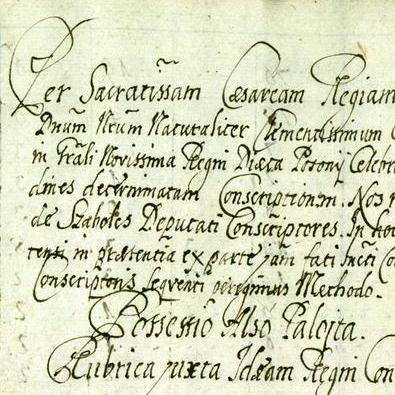 Per Sacratissm̃am Cæsaream Regiam
Dnum Nrum Naturaliter Clementissimum
in Grãli Novissima Regni Diæta Posonÿ Celebr
dines determinatam Conscriptionem. Nos
de Szabolcs Deputati Conscriptores. In
in præsentia ex parte jam fati Incti Co
Conscriptonis sequenti peregimus Methodo.
Possessio Also Palojta.
Rubrica juxta Idæam Regni Con